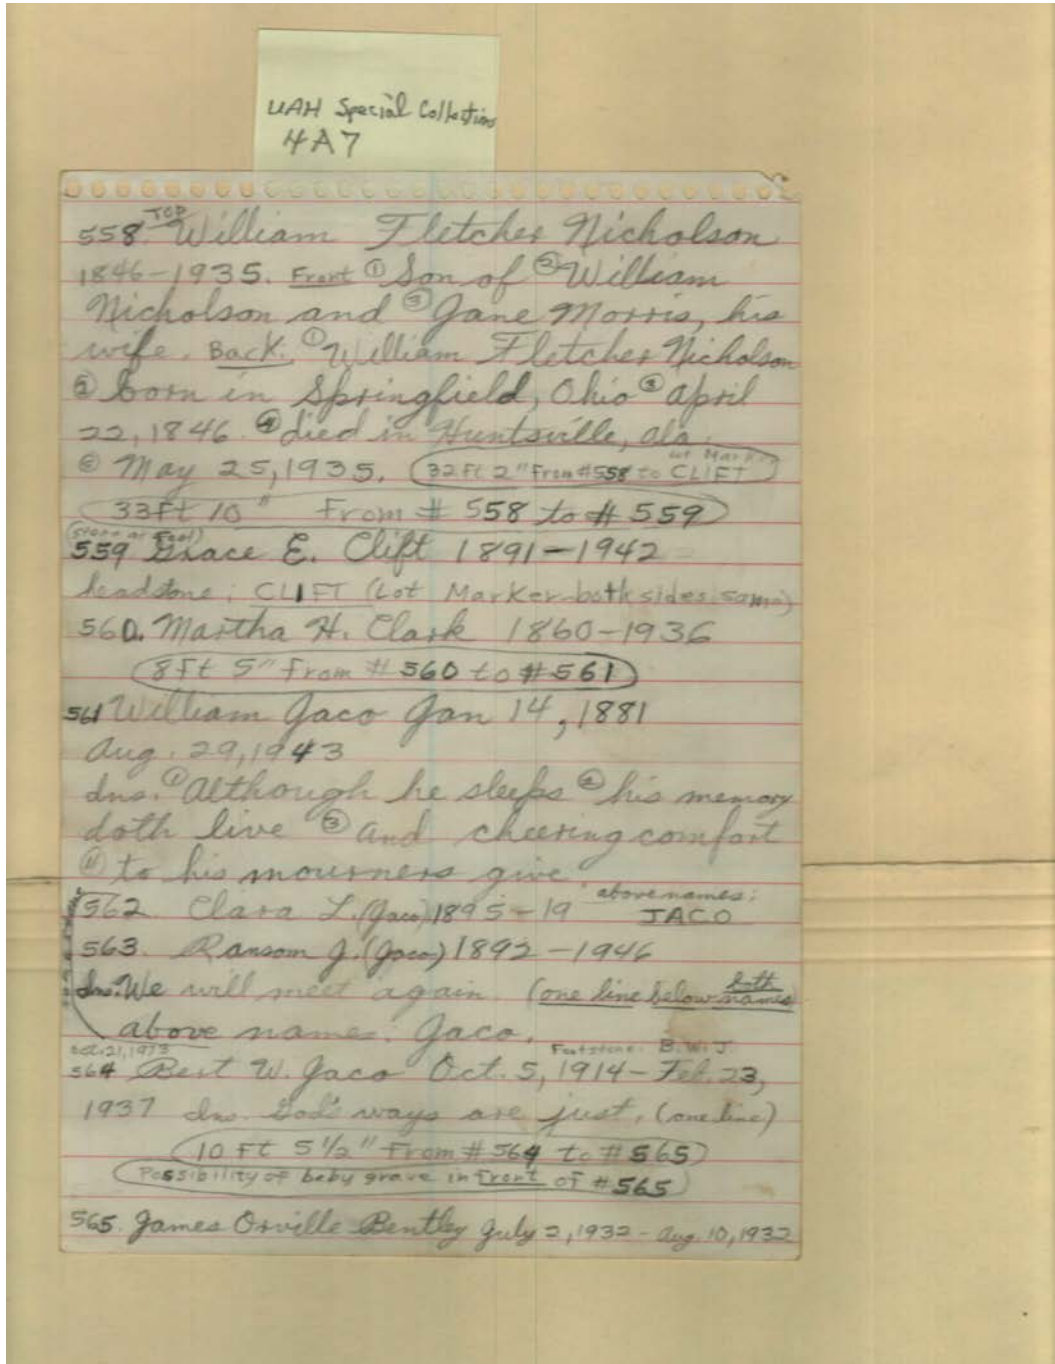 UAH Special Collections
4A7
TOP
558. William Fletcher Nicholson
1846-1935. Front ① Son of ② William
Nicholson and ③ Jane Morris, his
wife. Back. ① William Fletcher Nicholson
② born in Springfield, Ohio ③ April
22, 1846. ④ died in Huntsville, Ala.
⑤ May 25, 1935. (32 ft 2" From #558 to CLIFT Lot Marker)
33 ft 10" From # 558 to # 559
(stone at foot)
559 Grace E. Clift 1891-1942
headstone: CLIFT (Lot Marker-both sides same)
560. Martha H. Clark 1860-1936
8 ft 5" From # 560 to # 561
561 William Jaco Jan 14, 1881
Aug. 29, 1943
dns. ① Although he sleeps ② his memory
doth live ③ and cheering comfort
④ to his mourners give
above names:
562 Clara L. (Jaco) 1895-19 JACO
563. Ransom J. (Jaco) 1892-1946
dns. We will meet again. (one line below both names)
above names: Jaco.
Oct. 21, 1973 Footstone: B.W.J.
564 Bert W. Jaco Oct. 5, 1914 - Feb. 23,
1937 dns. God's ways are just. (one line)
10 Ft 5 1/2" From # 564 to # 565
Possibility of baby grave in front of # 565
565. James Orville Bentley July 2, 1932 - Aug. 10, 1932